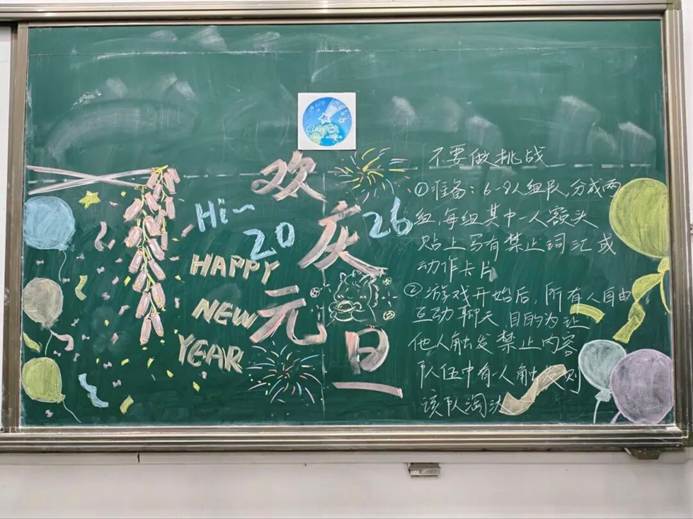 欢庆元旦
Hi~
20 26
HAPPY
NEW
YEAR
不要做挑战
①准备：6-9人组队,分成两
组,每组其中一人额头
贴上写有禁止词汇或
动作卡片
②游戏开始后,所有人自由
互动聊天,目的为让
他人触发禁止内容
队伍中有一人触发则
该队淘汰